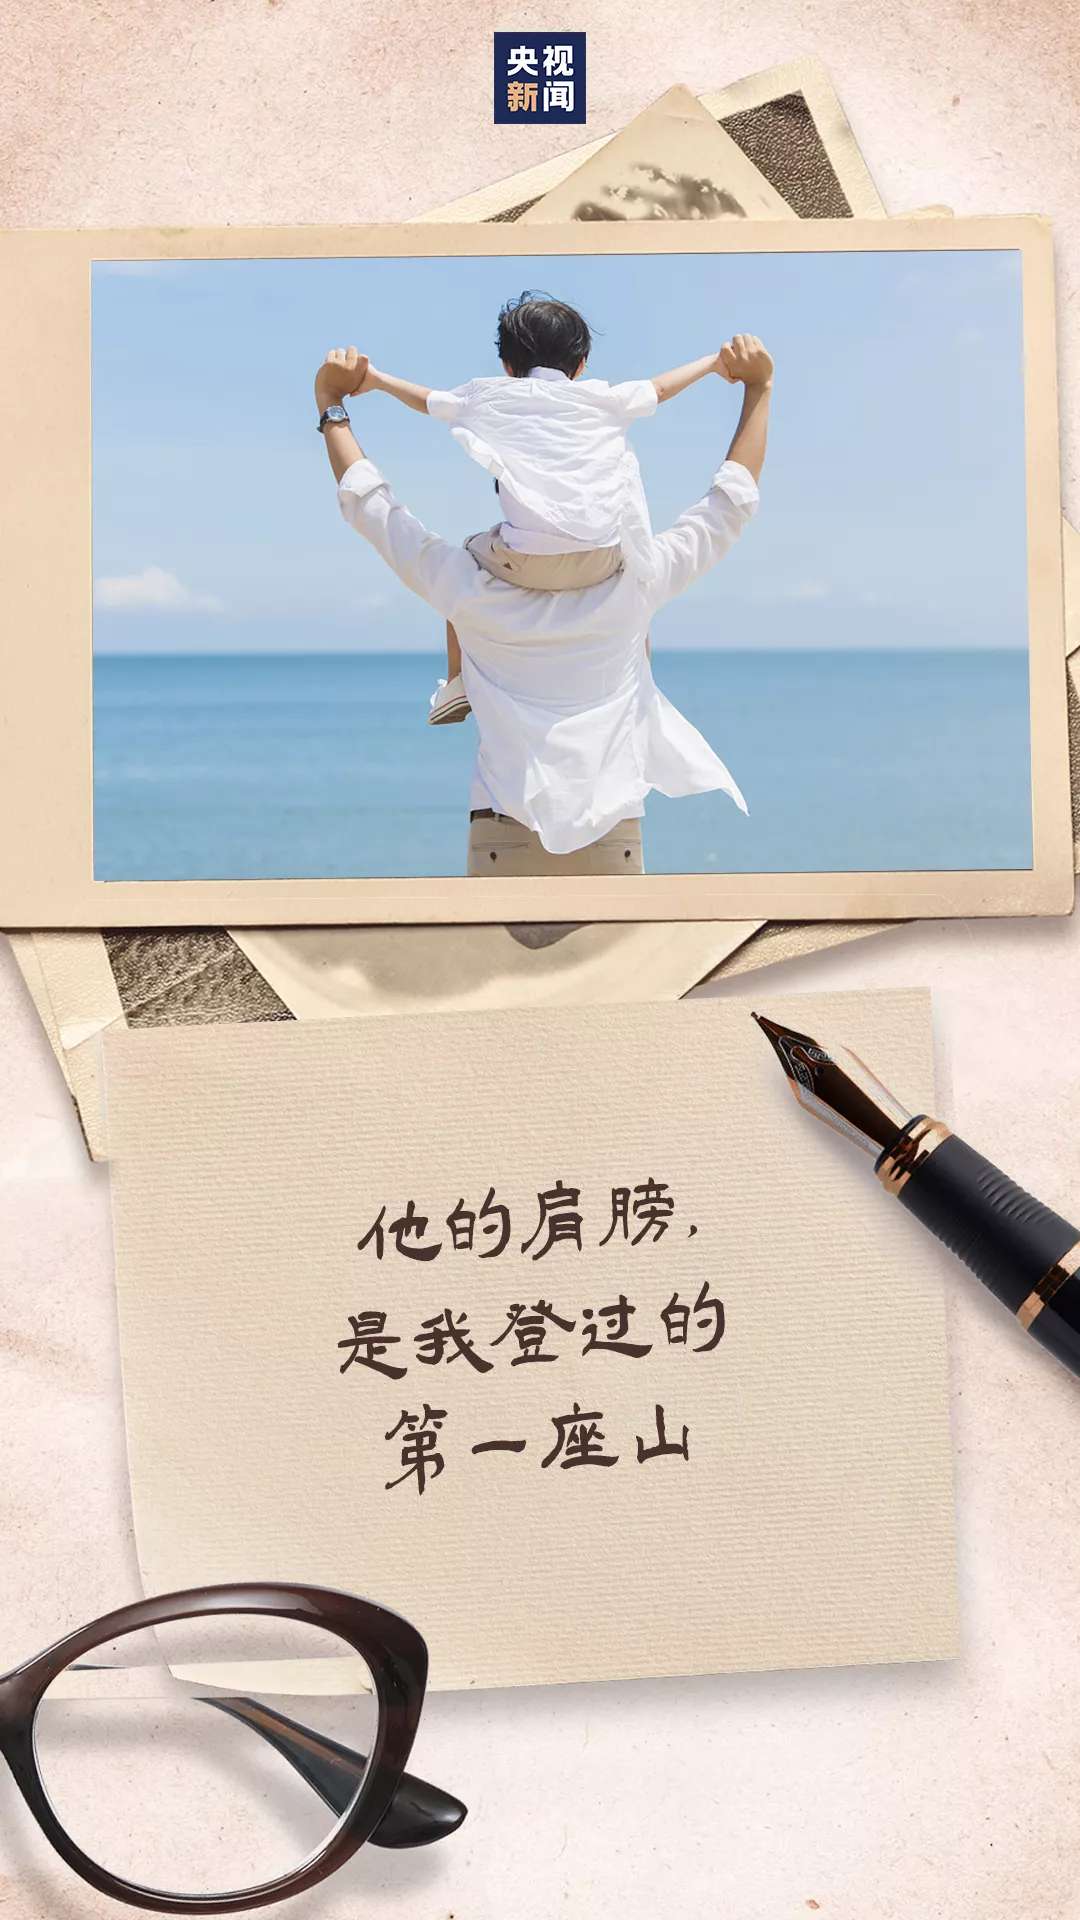 央视
新闻
他的肩膀,
是我登过的
第一座山